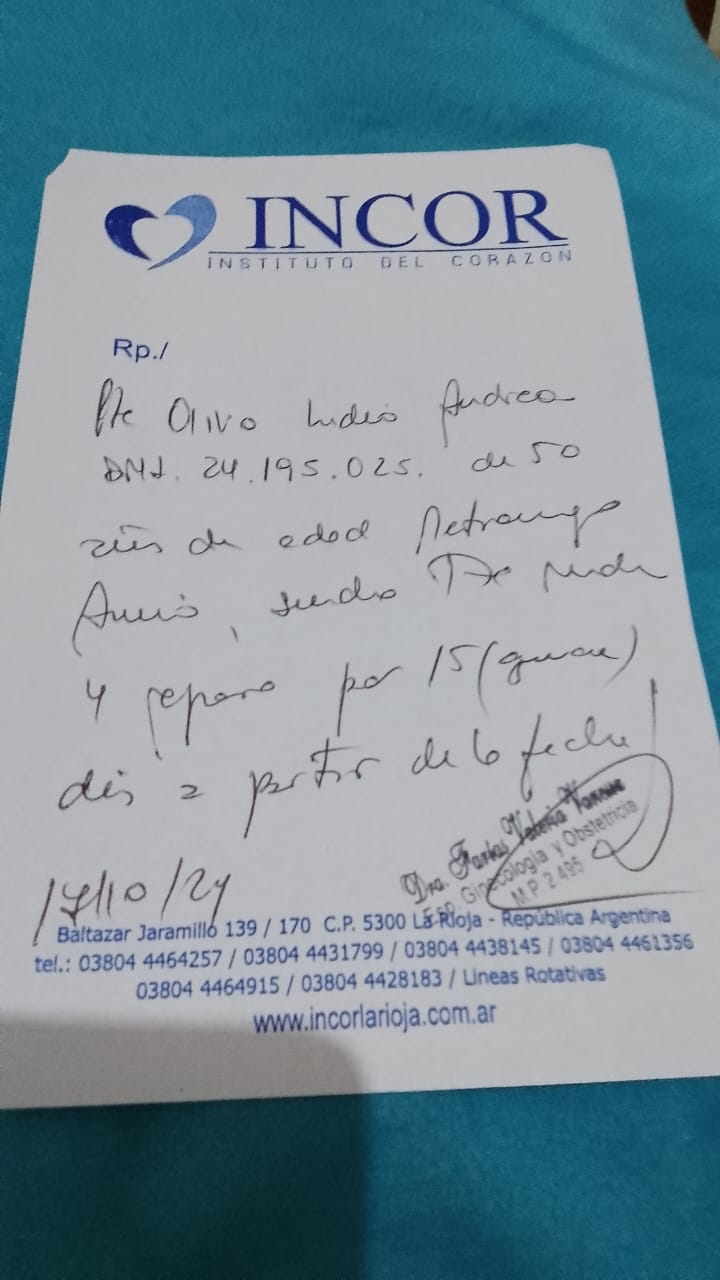 INCOR
INSTITUTO DEL CORAZON
Rp./
Pte Olivo Andrea
DNI. 24.195.025. de 50
de edad Metrorragia
4 reposo por 15 (quince)
días a partir de la fecha
17/10/24
Dra. Farías Valeria
Esp. Ginecología y Obstetricia
M.P. 2495
Baltazar Jaramillo 139 / 170 C.P. 5300 La Rioja - República Argentina
tel.: 03804 4464257 / 03804 4431799 / 03804 4438145 / 03804 4461356
03804 4464915 / 03804 4428183 / Lineas Rotativas
www.incorlarioja.com.ar